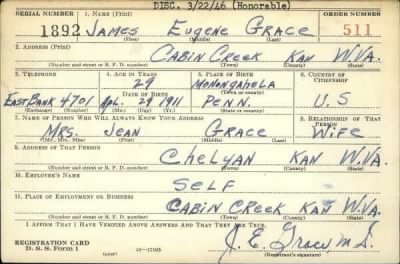 DISC. 3/22/46 (Honorable)
SERIAL NUMBER 1. NAME (Print) ORDER NUMBER
1892 JAMES EUGENE GRACE 511
(First) (Middle) (Last)
2. ADDRESS (Print)
CABIN CREEK KAN W.VA.
(Number and street or R. F. D. number) (Town) (County) (State)
3. TELEPHONE 4. AGE IN YEARS 5. PLACE OF BIRTH 6. COUNTRY OF CITIZENSHIP
29 MONONGAHELA
DATE OF BIRTH (Town or county)
EAST BANK 4701 APL. 29 1911 PENN. U.S
(Exchange) (Number) (Mo.) (Day) (Yr.) (State or country)
7. NAME OF PERSON WHO WILL ALWAYS KNOW YOUR ADDRESS 8. RELATIONSHIP OF THAT PERSON
MRS. JEAN GRACE WIFE
(Mr., Mrs., Miss) (First) (Middle) (Last)
9. ADDRESS OF THAT PERSON
CHELYAN KAN W.VA.
(Number and street or R. F. D. number) (Town) (County) (State)
10. EMPLOYER'S NAME
SELF
11. PLACE OF EMPLOYMENT OR BUSINESS
CABIN CREEK KAN W.VA.
(Number and street or R. F. D. number) (Town) (County) (State)
I AFFIRM THAT I HAVE VERIFIED ABOVE ANSWERS AND THAT THEY ARE TRUE.
REGISTRATION CARD
D. S. S. Form 1 (over) 16-17105 J. E. Grace, M.D.
(Registrant's signature)